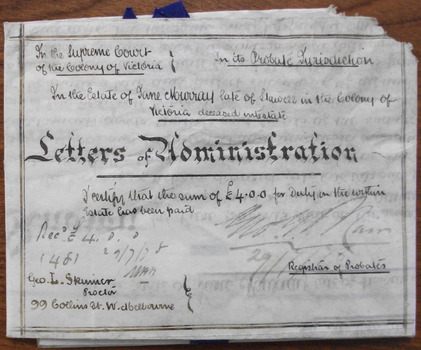 In the Supreme Court
of the Colony of Victoria
In its Probate Jurisdiction
In the Estate of Jane Murray late of Stawell in the Colony of
Victoria deceased intestate
Letters of Administration
I certify that the sum of £4.0.0 for Duty on the within
Estate has been paid
Rec^d £4.0.0
Registrar of Probates
Geo. L. Skinner
Proctor
99 Collins St. W. Melbourne